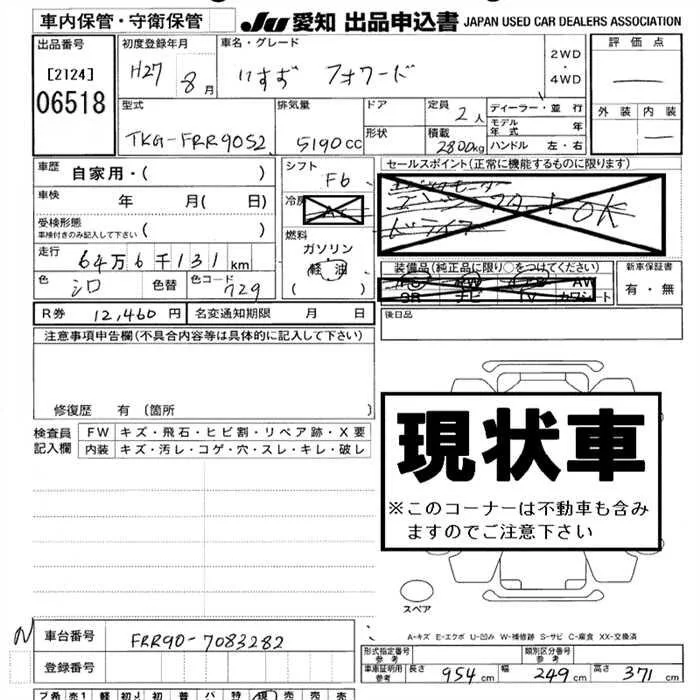 車内保管・守衛保管
JU 愛知 出品申込書 JAPAN USED CAR DEALERS ASSOCIATION
出品番号
[2124]
06518
初度登録年月
H27 8月
車名・グレード
いすず フォワード
2WD
・
4WD
評価点
外装 内装
型式
TKG-FRR90S2
排気量
5190cc
ドア
形状
定員 2人
積載 2800kg
ディーラー・並行
モデル年式 年
ハンドル 左・右
車歴
自家用・( )
車検 年 月( 日)
受検形態
車検付きのみ記入して下さい ( )
走行 64万6千131km
色 シロ 色替 色コード 729
シフト
F6
冷房
AC
燃料
ガソリン
軽油
( )
セールスポイント(正常に機能するものに限ります)
ドライブ OK
装備品(純正品に限り○をつけてください)
PW AW
SR ナビ TV カワシート
新車保証書
有・無
後日品
R券 12,460円 名変通知期限 月 日
注意事項申告欄(不具合内容等は具体的に記入して下さい)
修復歴 有〔箇所 〕
検査員記入欄
FW キズ・飛石・ヒビ割・リペア跡・X要
内装 キズ・汚レ・コゲ・穴・スレ・キレ・破レ
現状車
※このコーナーは不動車も含みますのでご注意下さい
スペア
A-キズ E-エクボ U-凹み W-補修跡 S-サビ C-腐食 XX-交換済
N
車台番号 FRR90-7083282
登録番号
形式指定番号 参考
類別区分番号 参考
車庫証明用 参考 長さ 954cm 幅 249cm 高さ 371cm